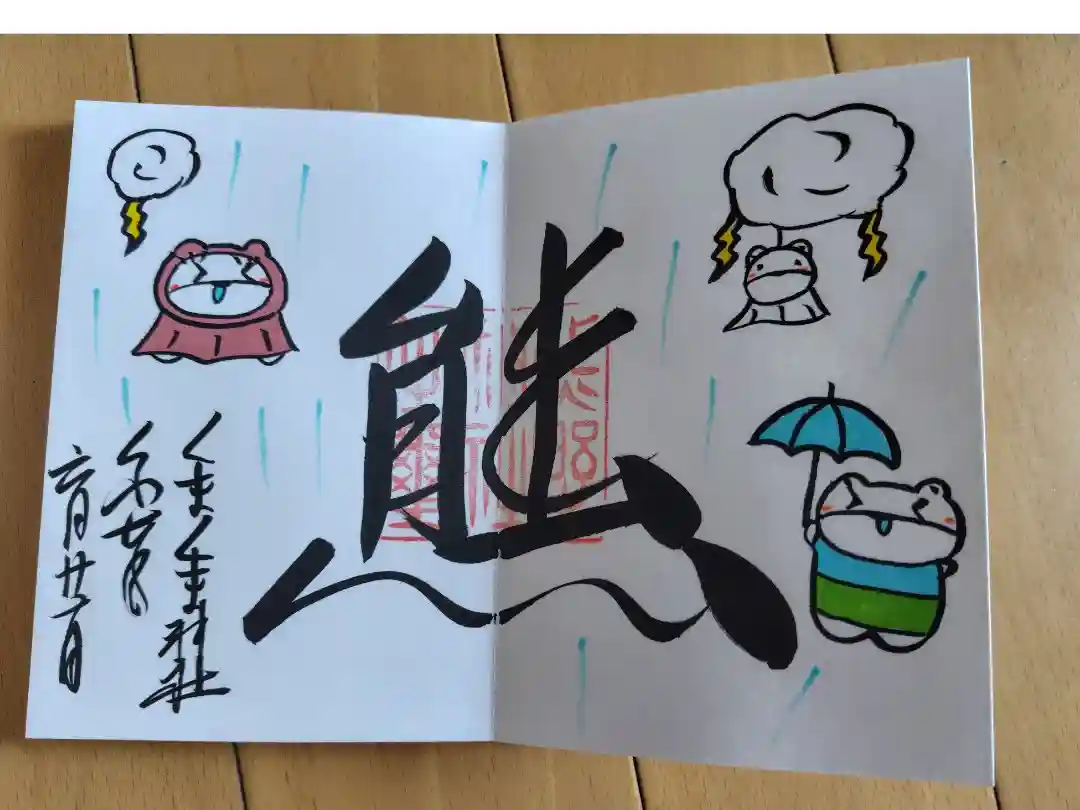 熊
くまくま神社
令和七年
六月廿一日